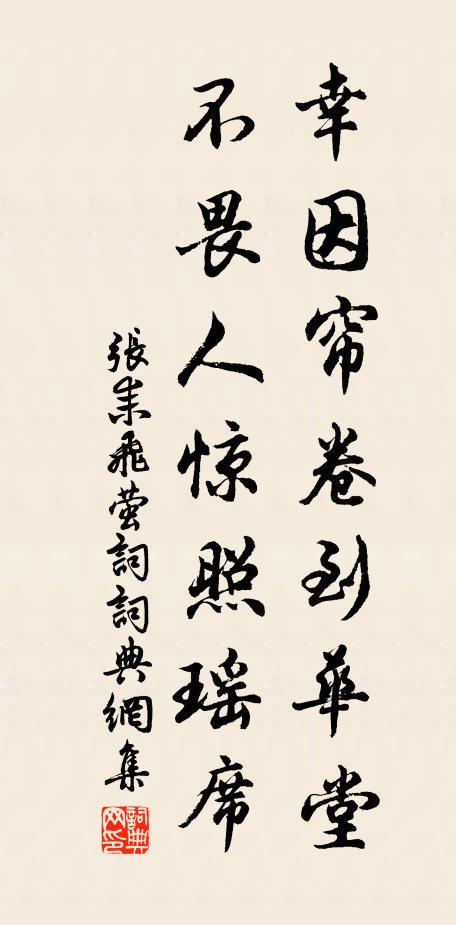 幸因帘卷到华堂
不畏人惊照瑶席
張耒飛萤詞詞典網集
詞典网印